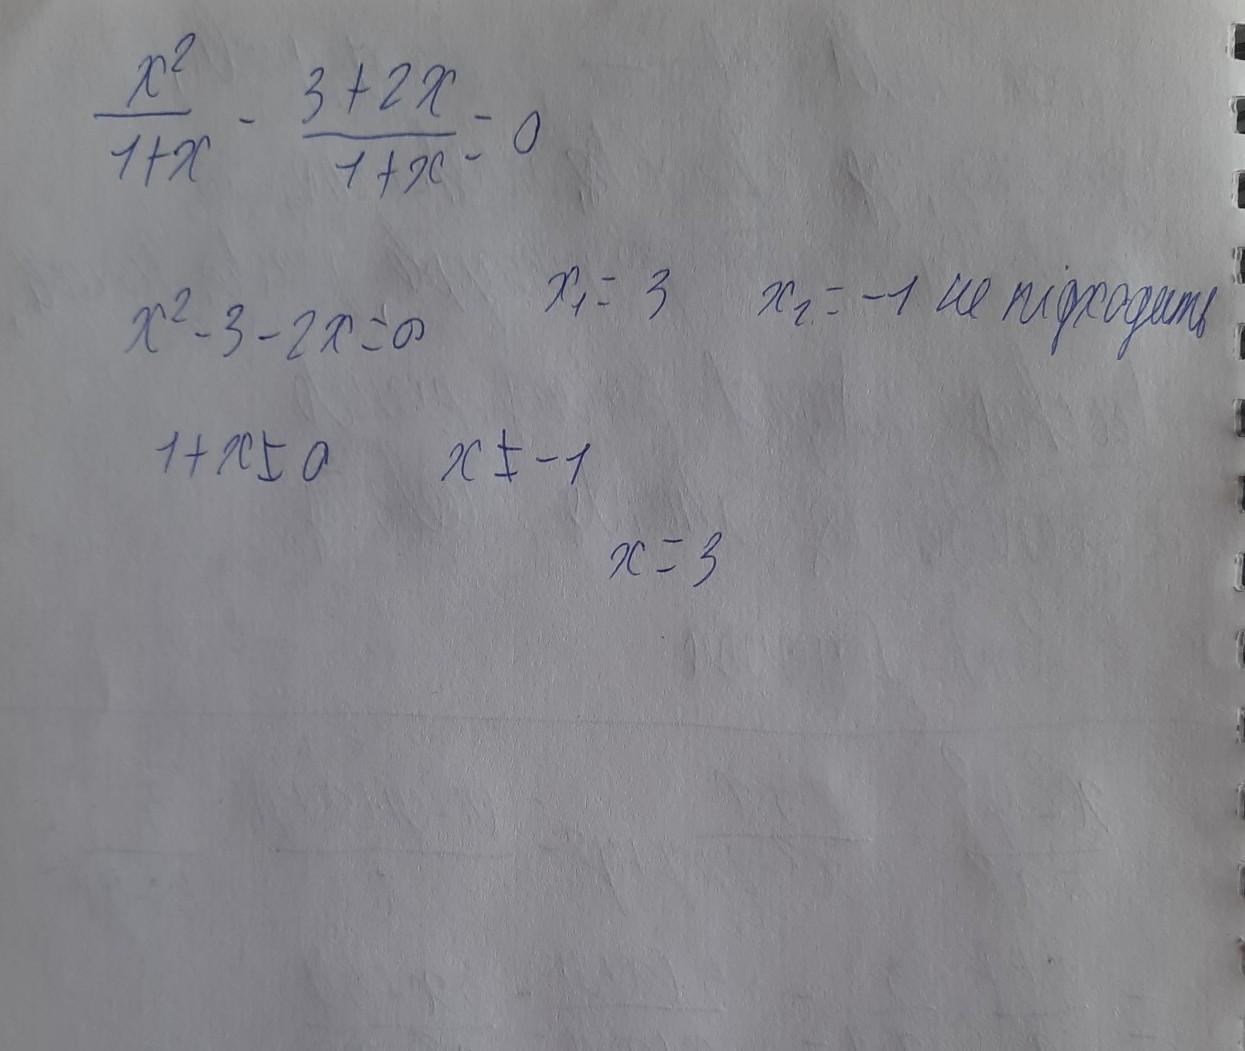 x²/(1+x) - (3+2x)/(1+x) = 0
x² - 3 - 2x = 0 x₁ = 3 x₂ = -1 не підходить
1+x ≠ 0 x ≠ -1
x = 3